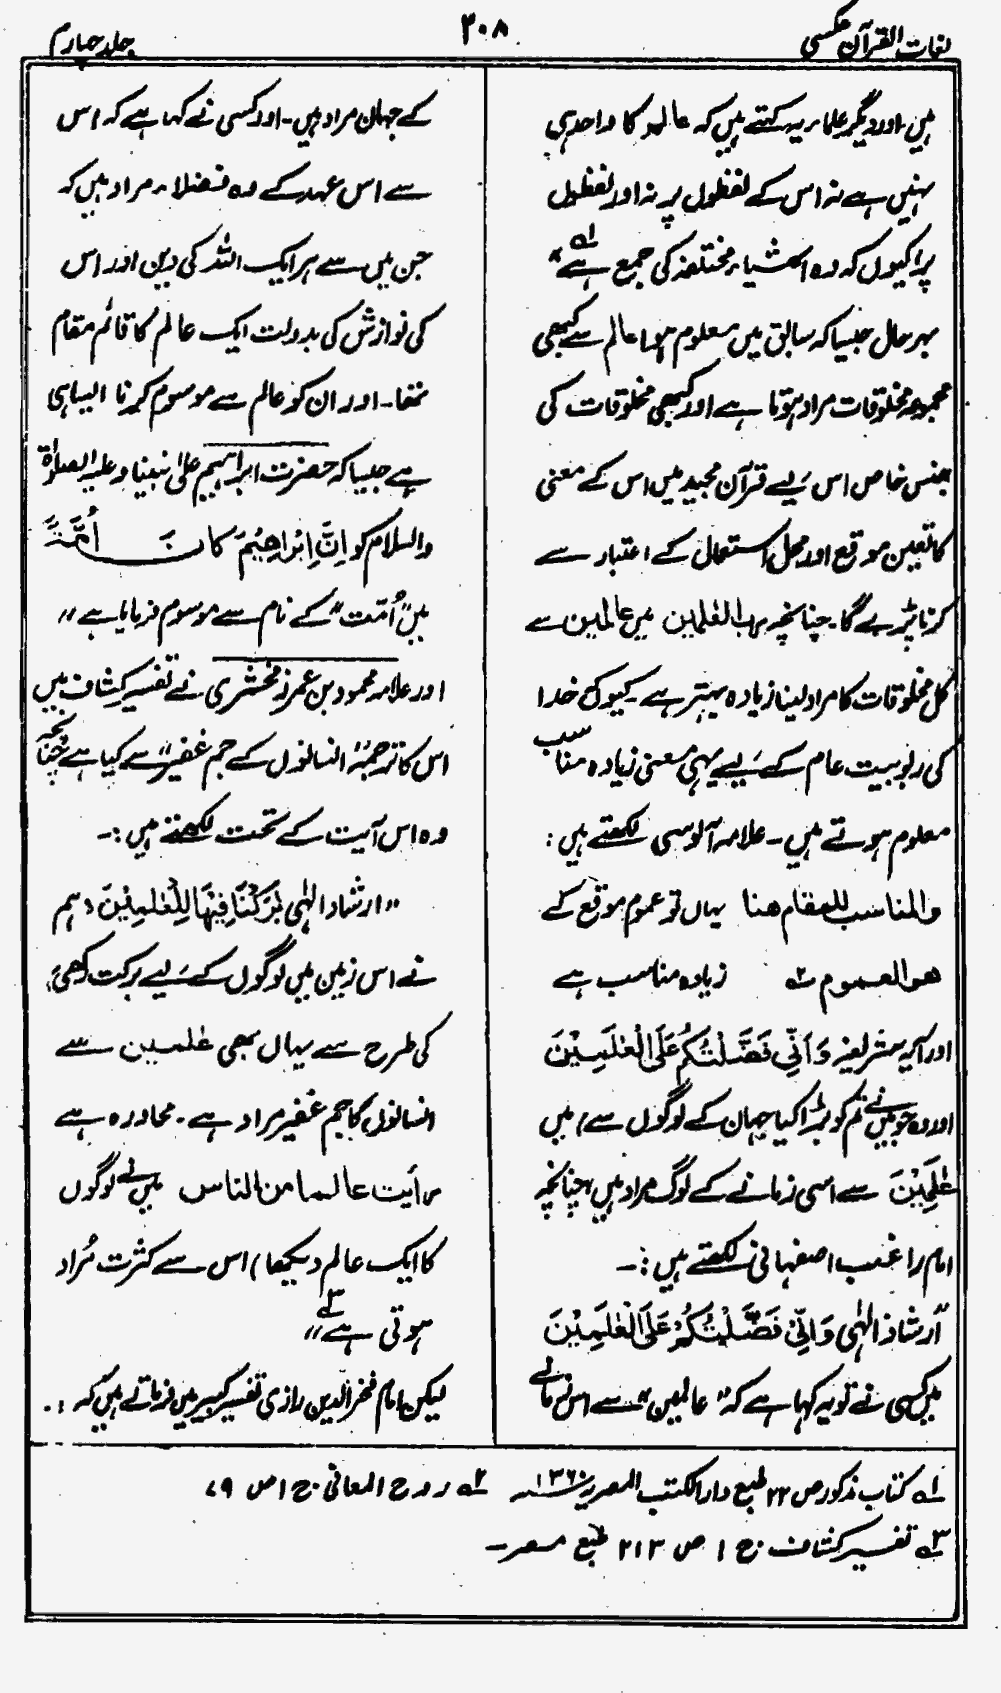 لغات القرآن عکسی
۲۰۸
جلد چہارم
ہیں۔ اور دیگر علماء یہ کہتے ہیں کہ عالم کا واحد ہی
نہیں ہے نہ اس کے لفظوں پر نہ اور لفظوں
پر کیوں کہ وہ اشیاء مختلفہ کی جمع ہے لہ"
بہرحال جیسا کہ سابق میں معلوم ہوا عالم سے کبھی
مجموعہ مخلوقات مراد ہوتا ہے اور کبھی مخلوقات کی
جنس خاص اس لیے قرآن مجید میں اس کے معنی
کا تعین موقع اور محل استعمال کے اعتبار سے
کرنا پڑے گا۔ چنانچہ رب العٰلمین میں عالمین سے
کل مخلوقات کا مراد لینا زیادہ بہتر ہے۔ کیوں کہ خدا
کی ربوبیت عام کے لیے یہی معنی زیادہ مناسب
معلوم ہوتے ہیں۔ علامہ آلوسی لکھتے ہیں:
والمناسب للمقام هنا یہاں تو عموم موقع کے
هو العموم ۲ہ زیادہ مناسب ہے
اور آیہ شریفہ وَاَنِّي فَضَّلْتُكُمْ عَلَى الْعٰلَمِيْنَ
اور وہ جو میں نے تم کو بڑا کیا جہان کے لوگوں سے) میں
عٰلَمِيْنَ سے اسی زمانے کے لوگ مراد ہیں، چنانچہ
امام راغب اصفہانی لکھتے ہیں:۔
"ارشاد الٰہی وَاَنِّيْ فَضَّلْتُكُمْ عَلَى الْعٰلَمِيْنَ
میں کسی نے تو یہ کہا ہے کہ "عالمین" سے اس زمانے
کے جہان مراد ہیں۔ اور کسی نے کہا ہے کہ اس
سے اس عہد کے وہ فضلاء مراد ہیں کہ
جن میں سے ہر ایک اللہ کی دین اور اس
کی نوازش کی بدولت ایک عالم کا قائم مقام
تھا۔ اور ان کو عالم سے موسوم کرنا ایسا ہی
ہے جیسا کہ حضرت ابراہیم علیٰ نبینا و علیہ الصلوٰۃ
والسلام کو اِنَّ اِبْرَاهِيْمَ كَانَ اُمَّةً
میں "اُمت" کے نام سے موسوم فرمایا ہے"
اور علامہ محمود بن عمر زمخشری نے تفسیر کشاف میں
اس کا ترجمہ "انسانوں کے جم غفیر" سے کیا ہے چنانچہ
وہ اس آیت کے تحت لکھتے ہیں:۔
"ارشاد الٰہی بٰرَكْنَا فِيْهَا لِلْعٰلَمِيْنَ (ہم
نے اس زمین میں لوگوں کے لیے برکت رکھی)
کی طرح سے یہاں بھی عٰلمین سے
انسانوں کا جم غفیر مراد ہے۔ محاورہ ہے
رأیت عالما من الناس میں نے لوگوں
کا ایک عالم دیکھا) اس سے کثرت مُراد
ہوتی ہے ۳ہ"
لیکن امام فخر الدین رازی تفسیر کبیر میں فرماتے ہیں کہ:۔
۱ہ کتاب مذکور ص ۲۲ طبع دار الکتب المصریہ ۱۳۶۰ ۲ہ روح المعانی ج ۱ ص ۷۹
۳ہ تفسیر کشاف ج ۱ ص ۲۱۳ طبع مصر۔